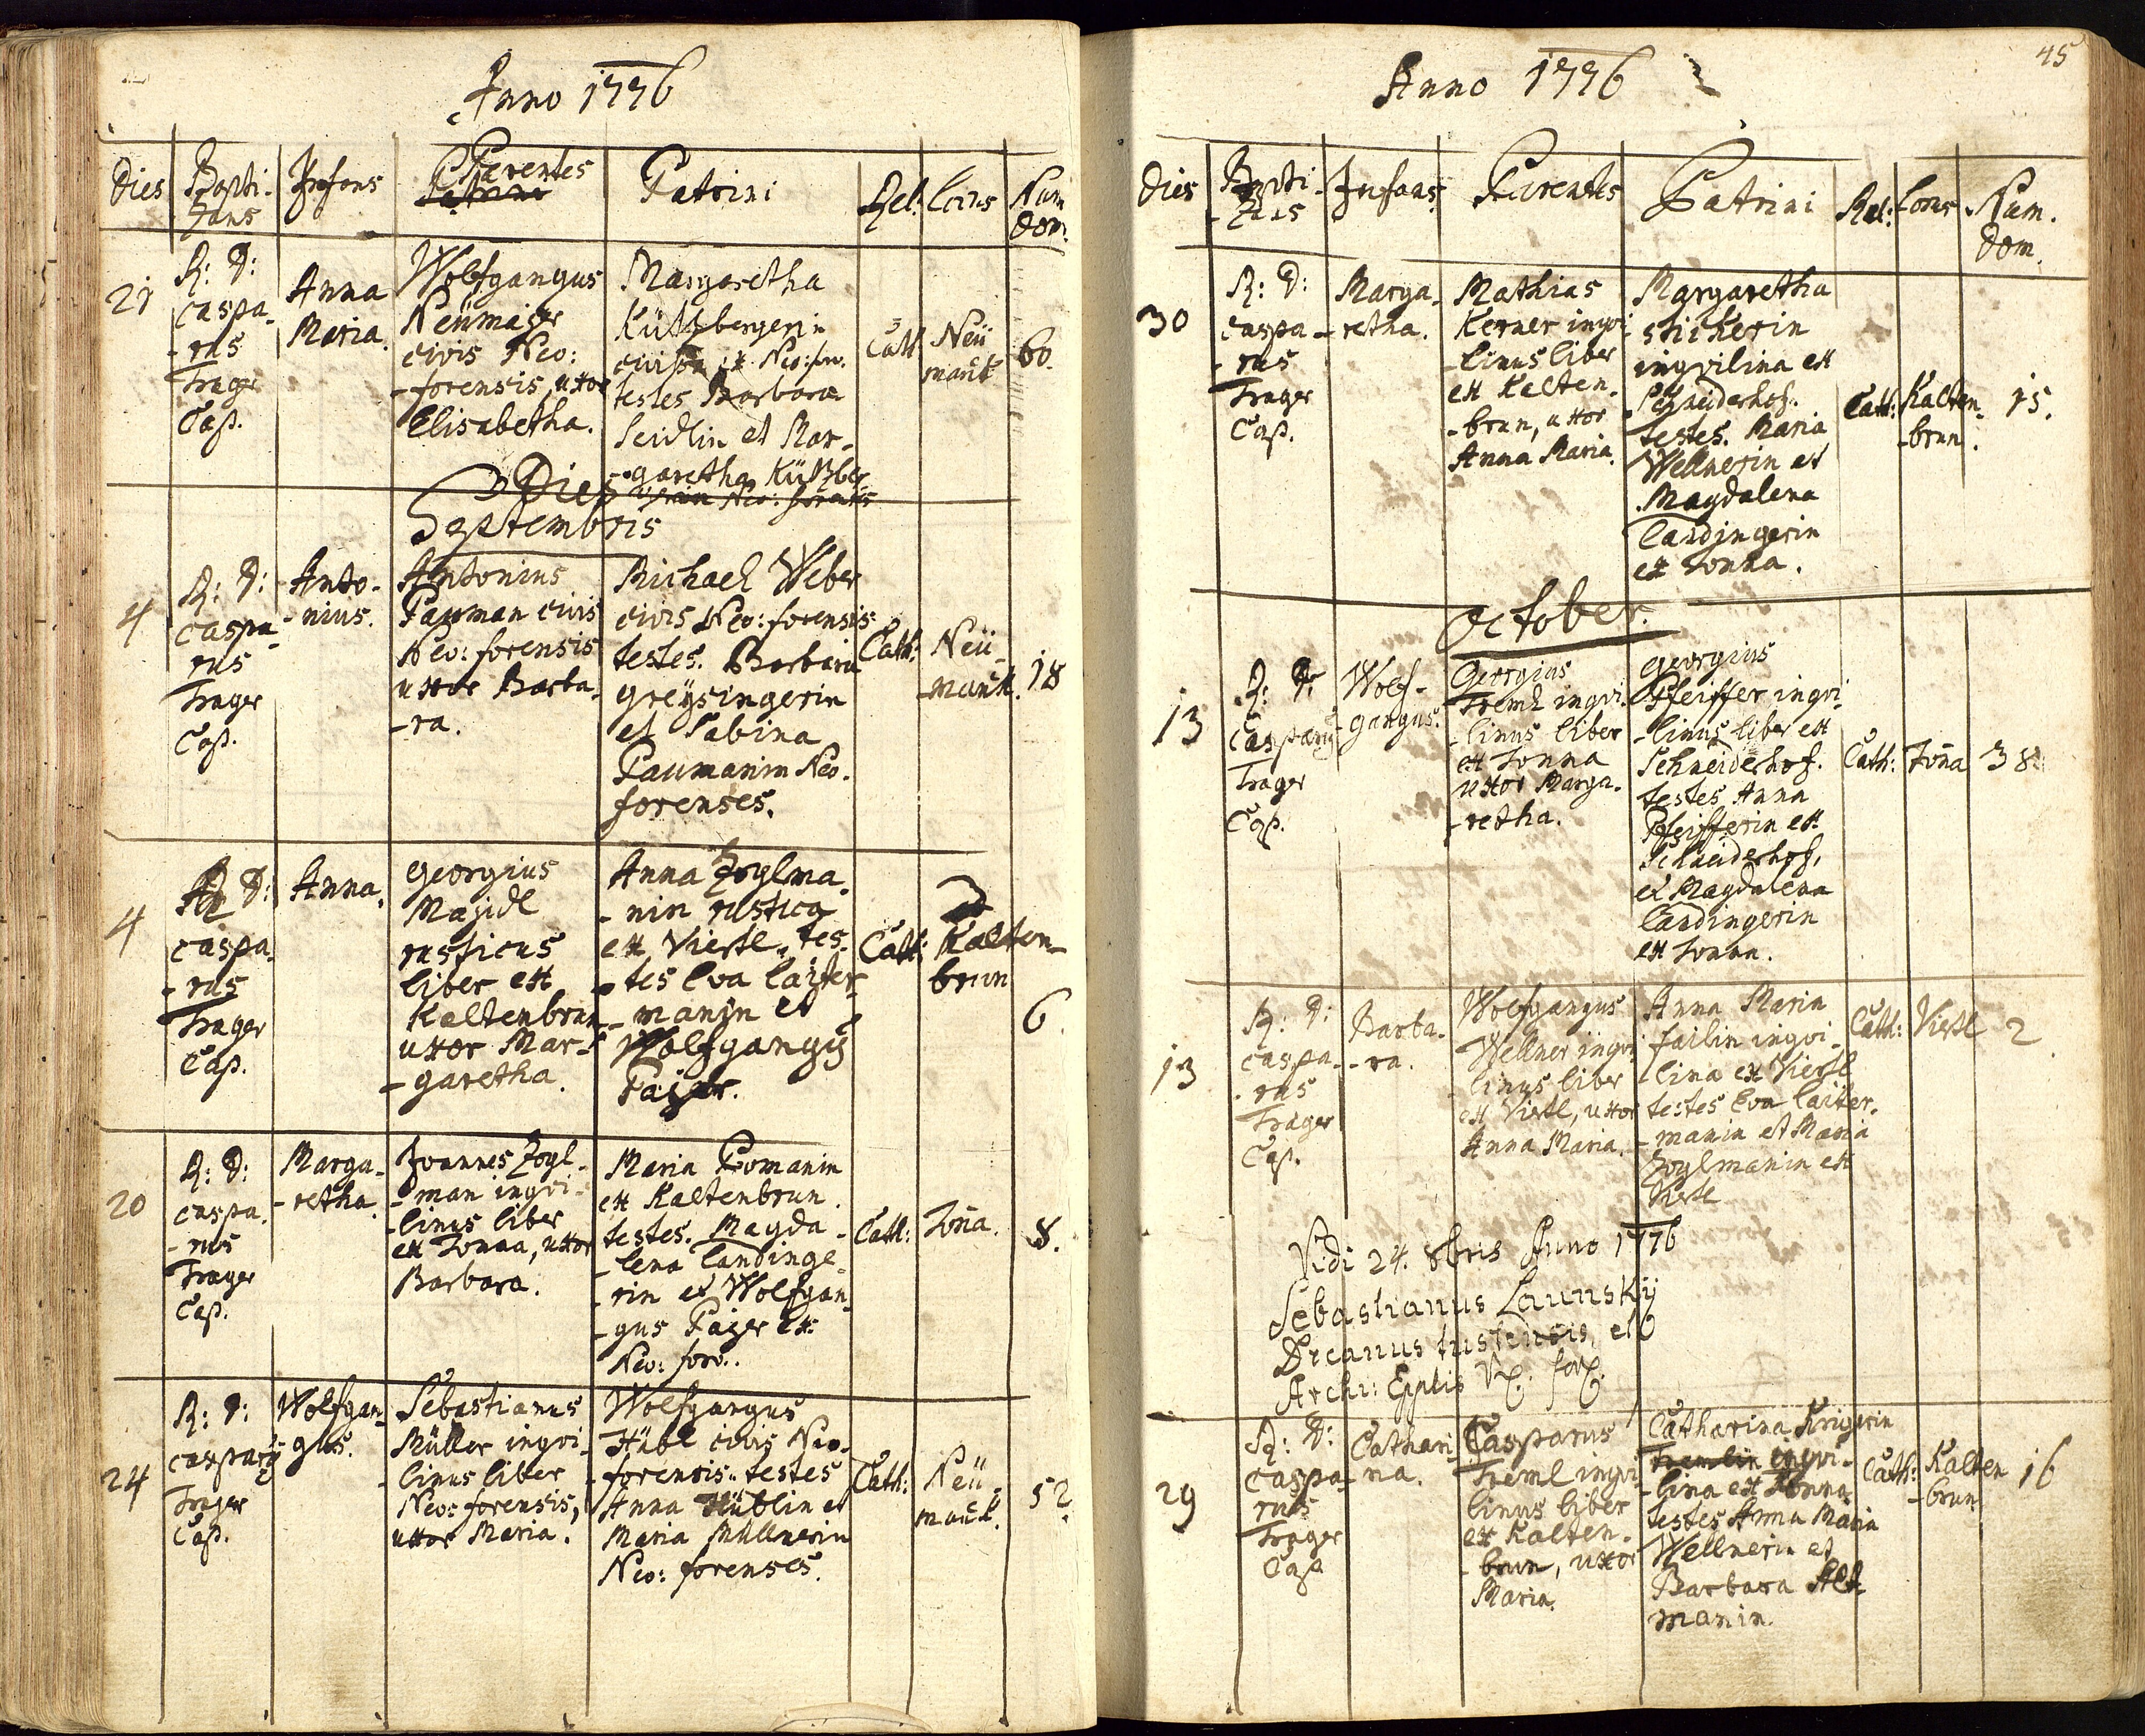 Anno 1776
Dies
Bapti-
zans
Infans
Parentes
Patrini
Rel:
Locus
Num
dom:
21
R: D:
Caspa-
-rus
Trager
Cap.
Anna
Maria.
Wolfgangus
Neümajer
civis Neo:
-forensis, uxor
Elisabetha.
Margaretha
civissa ex Neo: foro.
testes Barbara
Seidlin et Mar-
-garetha
Cath
Neü
marck
60.
Dies
Septembris
4
R: D:
Caspa-
rus
Trager
Cap.
Anto-
-nius.
Antonius
Pauman civis
Neo: forensis
uxor Barba-
-ra.
Michael Weber
civis Neo: forensis
testes. Barbara
greÿsingerin
et Sabina
Paumanin Neo.
forenses.
Cath:
Neü-
-marck.
18
4
R: D:
Caspa-
-rus
Trager
Cap.
Anna.
Georgius
Majidl
rusticus
liber ex
Kaltenbrun
uxor Mar-
-garetha.
Anna Zoglma-
-nin rustica
ex Viertl. tes-
-tes Eva Laiter-
-manin et
Wolfgangg
Pajer.
Cath:
Kalten-
brun
6
20
R: D:
Caspa-
-rus
Trager
Cap.
Marga-
-retha.
Joannes Zogl-
-man inqvi-
-linus liber
ex Tonna, uxor
Barbara.
Maria Pomanin
ex Kaltenbrun.
testes. Magda-
-lena Landinge-
-rin et Wolfgan-
-gus Pajer ex
Neo: foro.
Cath:
Toña.
8.
24
R: D:
Casparg
Trager
Cap.
Wolfgan-
gus.
Sebastianus
Müller inqvi-
-linus liber
Neo: forensis,
uxor Maria.
Wolfgangus
Hübl civis Neo-
-forensis. testes
Anna Hüblin et
Maria Müllnerin
Neo: forenses.
Cath:
Neü-
marck.
52
45
Anno 1776
Dies
Bapti-
-zans
Infans
Parentes
Patrini
Rel:
Locus
Num.
dom.
30
R: D:
Caspa-
-rus
Trager
Cap.
Marga-
-retha.
Mathias
Kerner inqvi-
-linus liber
ex Kalten-
-brun, uxor
Anna Maria.
Margaretha
Stickerin
inqvilina ex
Schneiderhof.
testes. Maria
Wellnerin et
Magdalena
Landingerin
ex Tonna.
Cath:
Kalten-
-brun.
15.
October.
13
R: D:
Casparg
Trager
Cap.
Wolf-
gangus.
Georgius
Treml inqvi-
-linus liber
ex Tonna
uxor Marga-
-retha.
Georgius
Pfeiffer inqvi-
-linus liber ex
Schneiderhof.
testes Anna
Pfeifferin ex
Schneiderhof,
et Magdalena
Landingerin
ex Tonna.
Cath:
Toña
38
13
R: D:
Caspa-
-rus
Trager
Cap.
Barba-
-ra.
Wolfgangus
Wellner inqvi-
-linus liber
ex Viertl, uxor
Anna Maria.
Anna Maria
Failin inqvi-
-lina ex Viertl
testes Eva Laiter-
-manin et Maria
Zoglmanin ex
Viertl
Cath:
Viertl
2
Vidi 24. 8bris Anno 1776
Sebastianus Launskÿ
Decanus tustensis, et
Archi:
29
R: D:
Caspa-
rus
Trager
Cap
Cathari-
na.
Casparus
Treml inqvi-
linus liber
ex Kalten-
-brun, uxor
Maria.
Catharina Krigerin
Tremlin inqvi-
-lina ex Tonna
testes Anna Maria
Wellnerin et
Barbara Alt-
manin.
Cath:
Kalten
-brun
16